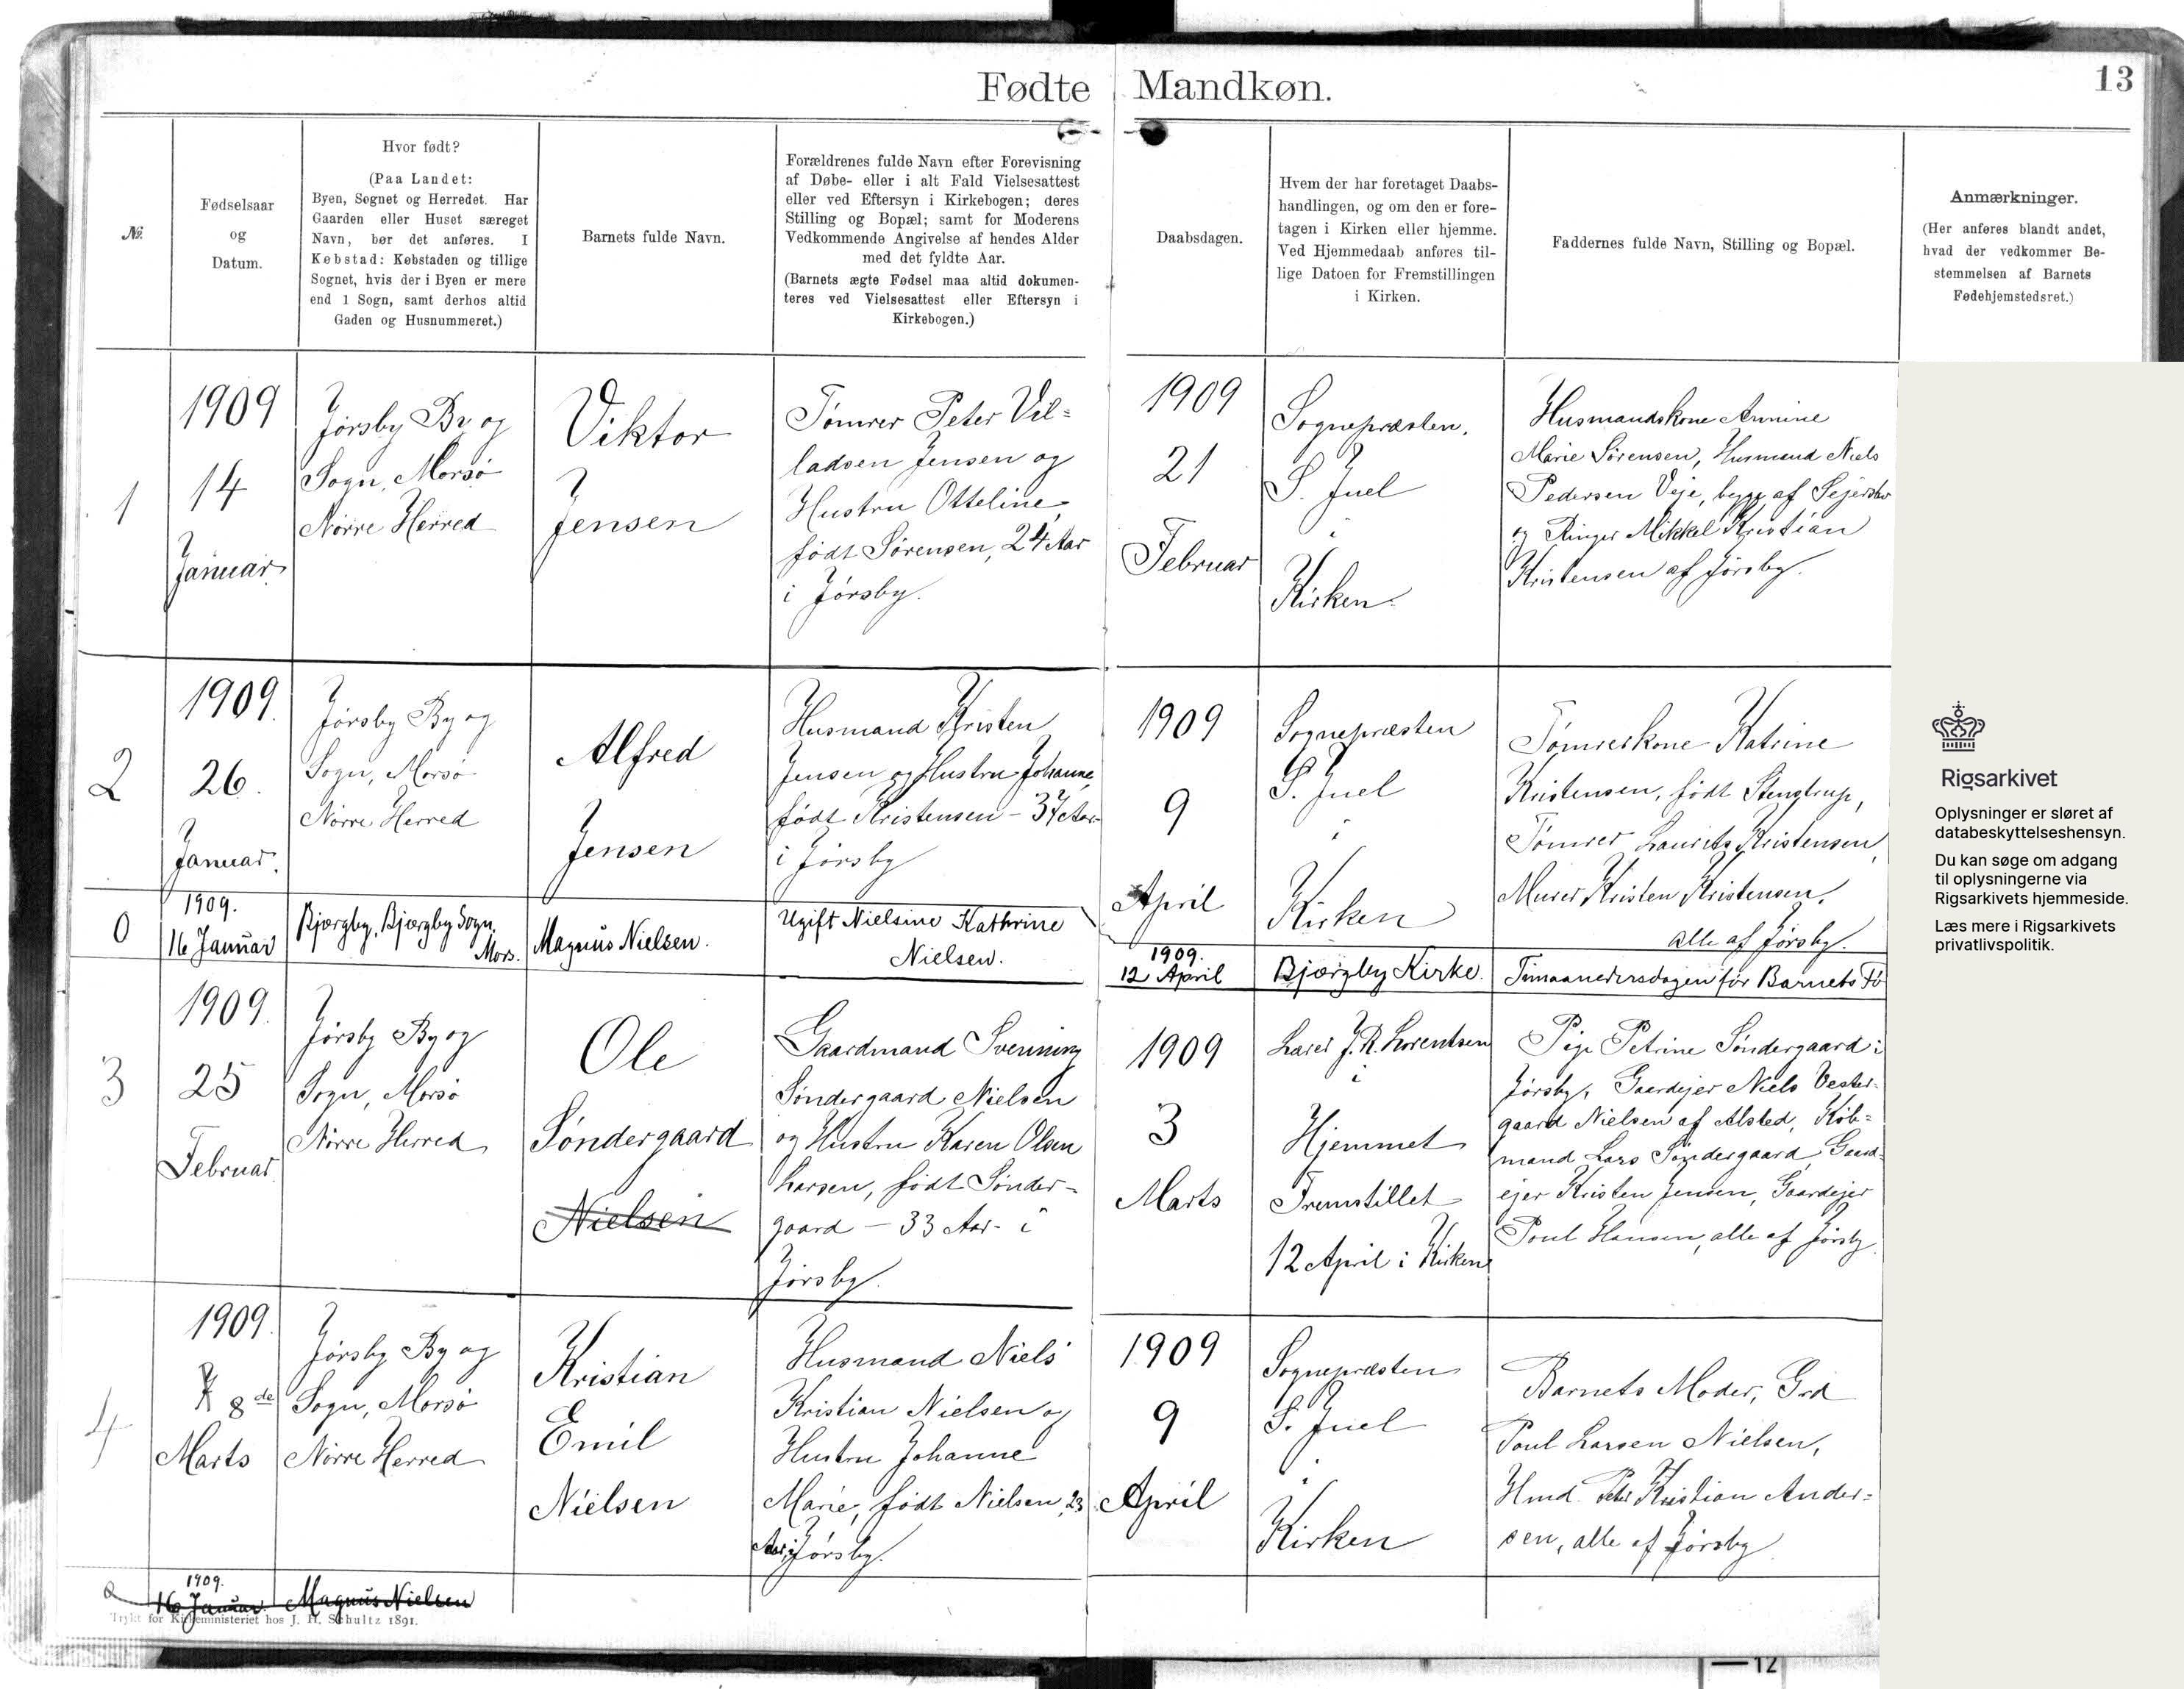 Fødte Mandkøn.
13
№.
Fødselsaar
og
Datum.
Hvor født?
(Paa Landet:
Byen, Sognet og Herredet. Har
Gaarden eller Huset særeget
Navn, bør det anføres. I
Købstad: Købstaden og tillige
Sognet, hvis der i Byen er mere
end 1 Sogn, samt derhos altid
Gaden og Husnummeret.)
Barnets fulde Navn.
Forældrenes fulde Navn efter Forevisning
af Døbe- eller i alt Fald Vielsesattest
eller ved Eftersyn i Kirkebogen; deres
Stilling og Bopæl; samt for Moderens
Vedkommende Angivelse af hendes Alder
med det fyldte Aar.
(Barnets ægte Fødsel maa altid dokumen-
teres ved Vielsesattest eller Eftersyn i
Kirkebogen.)
Daabsdagen.
Hvem der har foretaget Daabs-
handlingen, og om den er fore-
tagen i Kirken eller hjemme.
Ved Hjemmedaab anføres til-
lige Datoen for Fremstillingen
i Kirken.
Faddernes fulde Navn, Stilling og Bopæl.
Anmærkninger.
(Her anføres blandt andet,
hvad der vedkommer Be-
stemmelsen af Barnets
Fødehjemstedsret.)
1
1909
14
Januar
Jørsby By og
Sogn, Morsø
Nørre Herred
Viktor
Jensen
Tømrer Peter Vil=
ladsen Jensen og
Hustru Otteline,
født Sørensen, 24 Aar
i Jørsby.
1909
21
Februar
Sognepræsten,
S. Juel
i
Kirken.
Husmandskone Annine
Marie Sørensen, Husmand Niels
Pedersen Veje, begge af Sejerslev
og Ringer Mikkel Kristian
Kristensen af Jørsby.
2
1909.
26.
Januar.
Jørsby By og
Sogn, Morsø
Nørre Herred
Alfred
Jensen
Husmand Kristen
Jensen og Hustru Johanne,
født Kristensen - 37 Aar-
i Jørsby
1909
9
April
Sognepræsten
S. Juel
i
Kirken
Tømrerkone Katrine
Kristensen, født Stenstrup,
Tømrer Laurits Kristensen,
Murer Kristen Kristensen,
alle af Jørsby.
0
1909.
16 Januar
Bjærgby, Bjærgby Sogn,
Mors.
Magnus Nielsen.
Ugift Nielsine Kathrine
Nielsen.
1909.
12 April
Bjærgby Kirke.
Timaanedersdagen før Barnets Fø
3
1909.
25
Februar
Jørsby By og
Sogn, Morsø
Nørre Herred
Ole
Søndergaard
Nielsen
Gaardmand Svenning
Søndergaard Nielsen
og Hustru Karen Olsen
Larsen, født Sønder-
gaard - 33 Aar- i
Jørsby.
1909
3
Marts
Lærer J. R. Lorentsen
i
Hjemmet
Fremstillet
12 April i Kirken
Pige Petrine Søndergaard i
Jørsby, Gaardejer Niels Vester-
gaard Nielsen af Alsted, Køb=
mand Lars Søndergaard, Gaard-
ejer Kristen Jensen, Gaardejer
Poul Hansen, alle af Jørsby.
4
1909.
8de
Marts
Jørsby By og
Sogn, Morsø
Nørre Herred
Kristian
Emil
Nielsen
Husmand Niels
Kristian Nielsen og
Hustru Johanne
Marie, født Nielsen, 23
Aar, i Jørsby.
1909
9
April
Sognepræsten
S. Juel
i
Kirken
Barnets Moder, Grd
Poul Larsen Nielsen,
Hmd. Peter Kristian Ander=
sen, alle af Jørsby
1909.
16 Januar. Magnus Nielsen
Trykt for Kirkeministeriet hos J. H. Schultz 1891.
Rigsarkivet
Oplysninger er sløret af
databeskyttelseshensyn.
Du kan søge om adgang
til oplysningerne via
Rigsarkivets hjemmeside.
Læs mere i Rigsarkivets
privatlivspolitik.
12